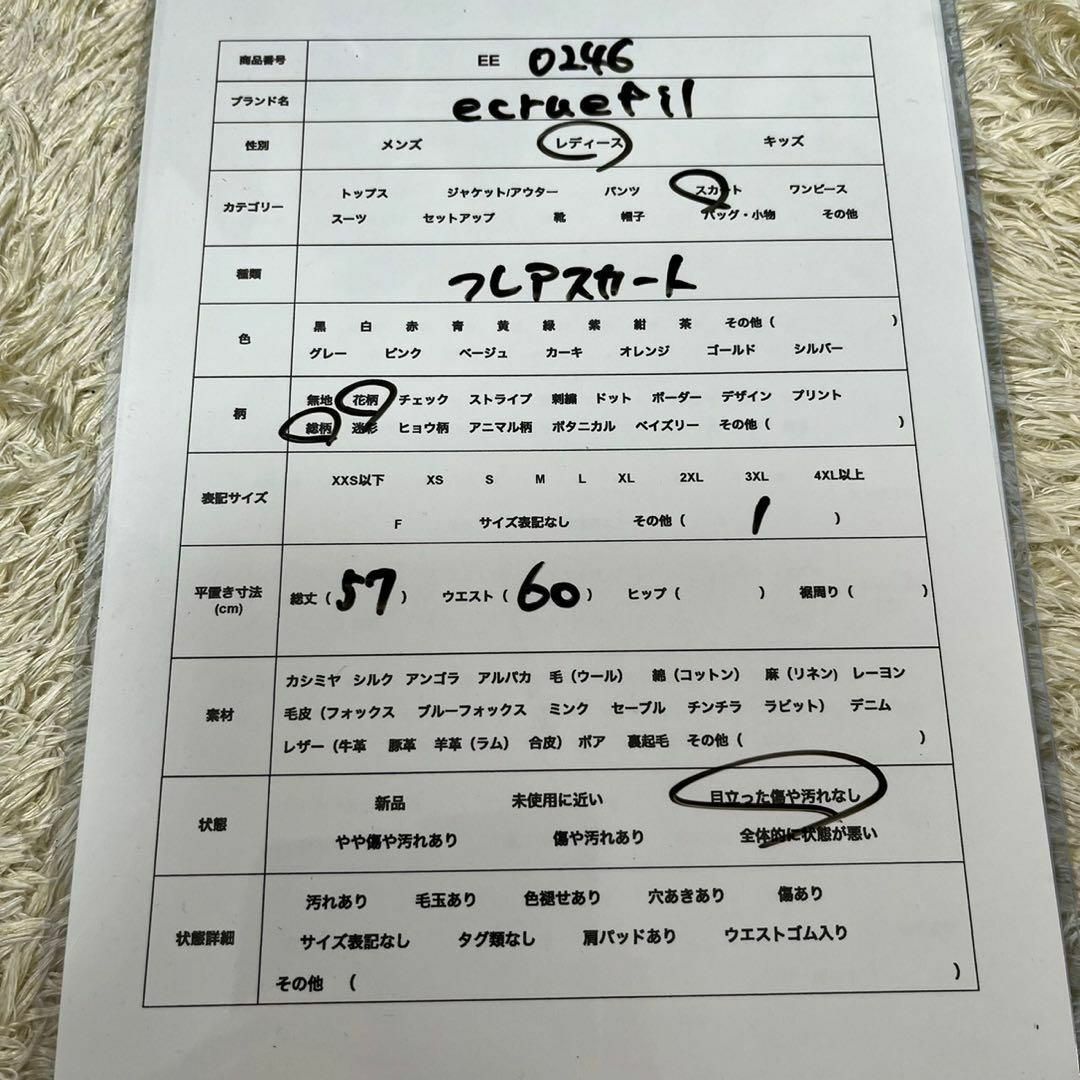 商品番号 EE 0246
ブランド名 ecruefil
性別 メンズ レディース キッズ
カテゴリー
トップス ジャケット/アウター パンツ スカート ワンピース
スーツ セットアップ 靴 帽子 バッグ・小物 その他
種類 フレアスカート
色
黒 白 赤 青 黄 緑 紫 紺 茶 その他 ( )
グレー ピンク ベージュ カーキ オレンジ ゴールド シルバー
柄
無地 花柄 チェック ストライプ 刺繍 ドット ボーダー デザイン プリント
総柄 迷彩 ヒョウ柄 アニマル柄 ボタニカル ペイズリー その他 ( )
表記サイズ
XXS以下 XS S M L XL 2XL 3XL 4XL以上
F サイズ表記なし その他 ( 1 )
平置き寸法
(cm)
総丈 ( 57 ) ウエスト ( 60 ) ヒップ ( ) 裾周り ( )
素材
カシミヤ シルク アンゴラ アルパカ 毛（ウール） 綿（コットン） 麻（リネン） レーヨン
毛皮（フォックス ブルーフォックス ミンク セーブル チンチラ ラビット） デニム
レザー（牛革 豚革 羊革（ラム） 合皮） ボア 裏起毛 その他 ( )
状態
新品 未使用に近い 目立った傷や汚れなし
やや傷や汚れあり 傷や汚れあり 全体的に状態が悪い
状態詳細
汚れあり 毛玉あり 色褪せあり 穴あきあり 傷あり
サイズ表記なし タグ類なし 肩パッドあり ウエストゴム入り
その他 ( )